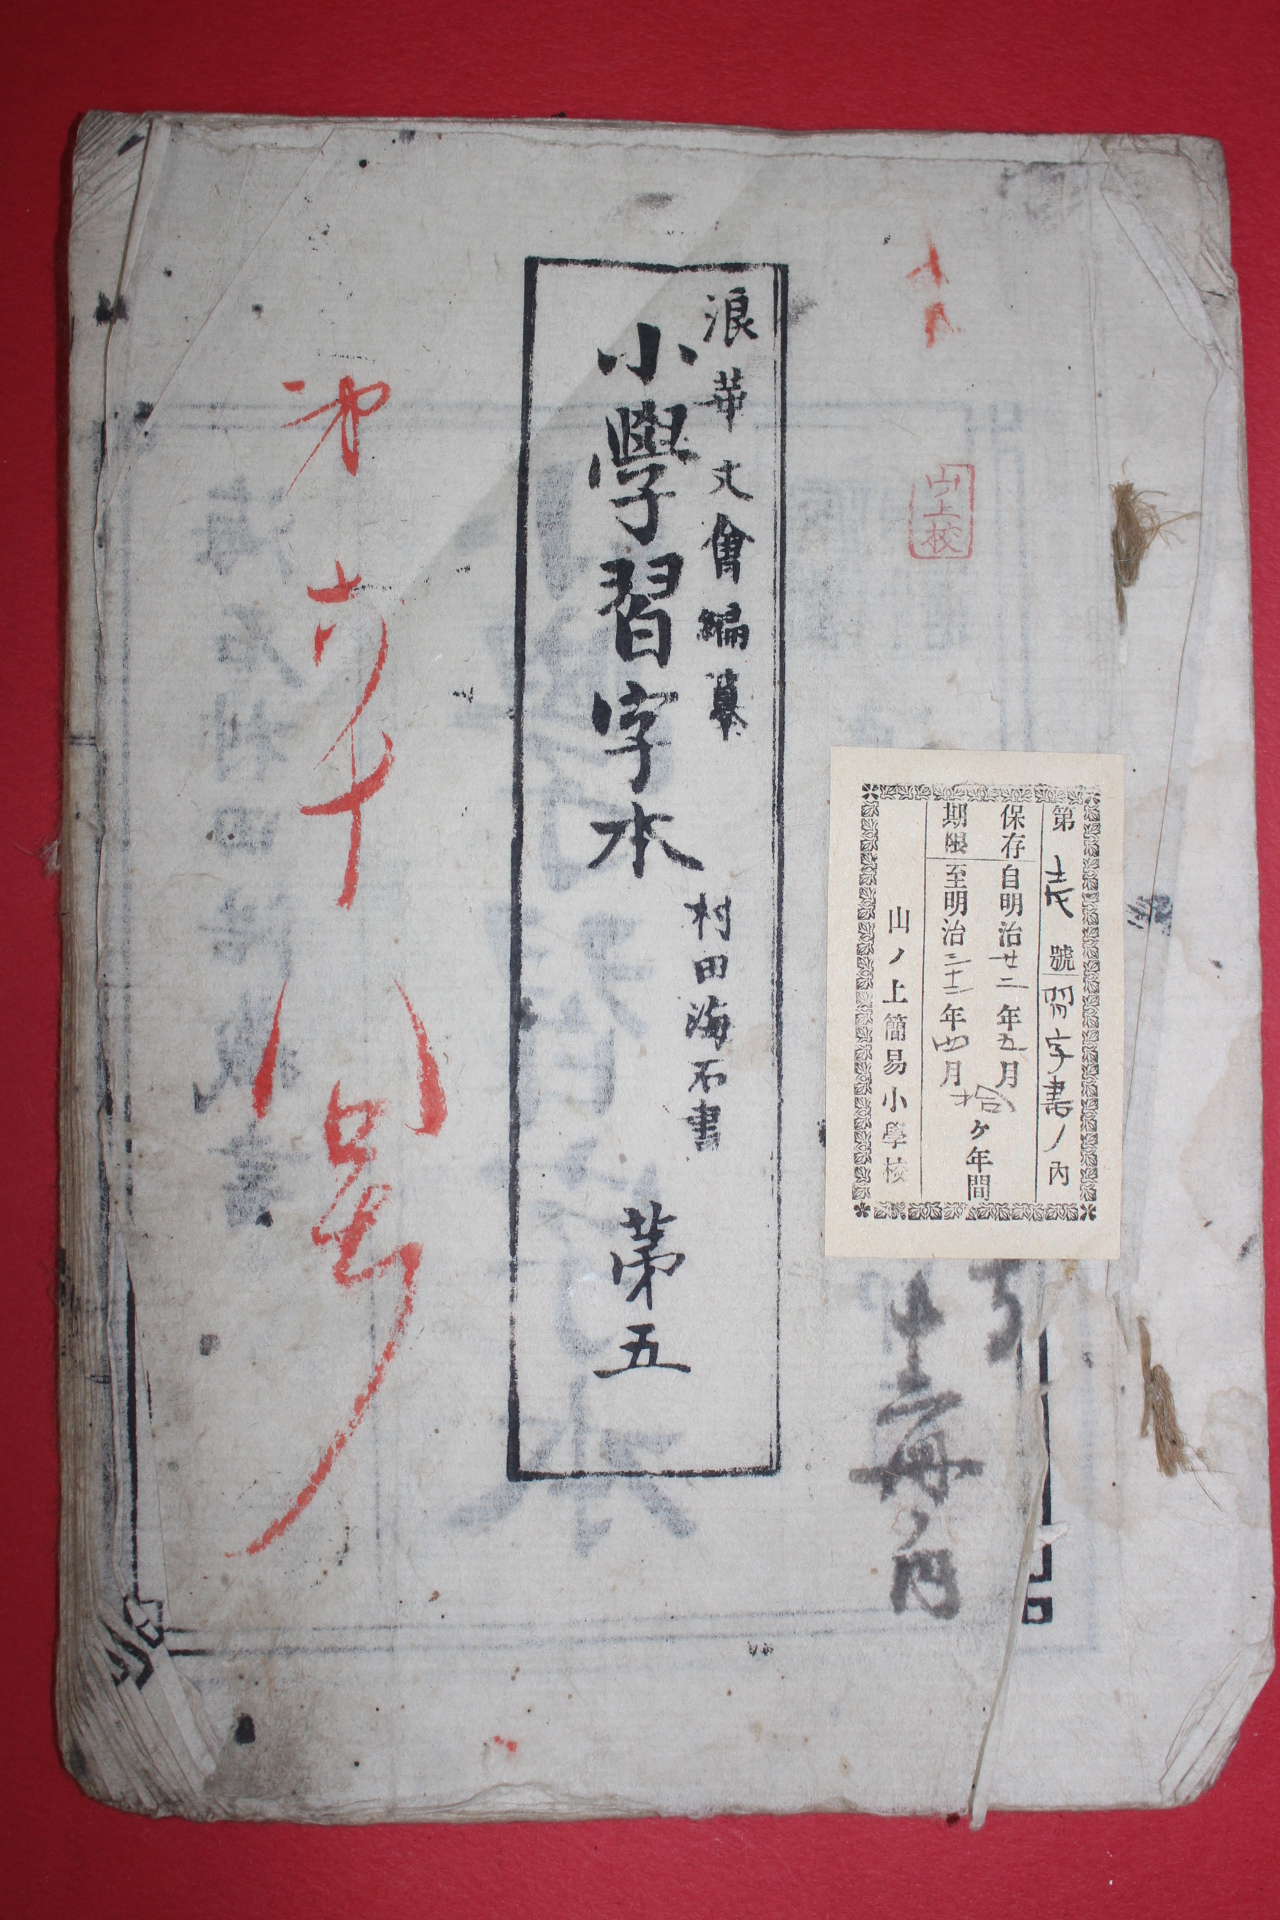 山上校
第 壱 號 習字書ノ内
保存 自明治廿二年五月
期限 至明治三十二年四月
拾ヶ年間
山ノ上簡易小學校
十三冊ノ内
浪華文會編纂
小學習字本 第五
村田海石書
第六十八号